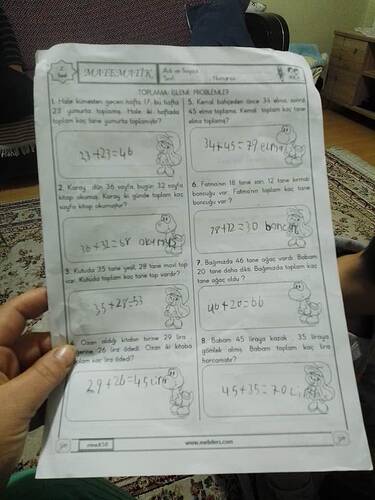 2. Sınıf
MATEMATİK
Adı ve Soyadı
Sınıf
Numarası
TOPLAMA İŞLEMİ PROBLEMLERİ
1. Hale kümesten geçen hafta 17, bu hafta
23 yumurta toplamış. Hale iki haftada
toplam kaç tane yumurta toplamıştır?
23+23=46
2. Koray, dün 36 sayfa, bugün 32 sayfa
kitap okumuş. Koray iki günde toplam kaç
sayfa kitap okumuştur?
36+32=68
3. Kutuda 35 tane yeşil, 28 tane mavi top
var. Kutuda toplam kaç tane top vardır?
35+28=53
Ozan aldığı kitapların birine 29 lira
diğerine 26 lira ödedi. Ozan iki kitaba
toplam kaç lira ödedi?
29+26=45 Lira
5. Kemal bahçeden önce 34 elma, sonra
45 elma toplamış. Kemal toplam kaç tane
elma toplamış?
34+45=79 elma
6. Fatma'nın 18 tane sarı, 12 tane kırmızı
boncuğu var. Fatma'nın toplam kaç tane
boncuğu vardır?
18+12=30 boncuk
7. Bağımızda 46 tane ağaç vardı. Babam
20 tane daha dikti. Bağımızda toplam kaç
tane ağaç oldu?
46+20=66
8. Babam 45 liraya kazak, 35 liraya
gömlek almış. Babam toplam kaç lira
harcamıştır?
45+35=70 Lira
www.mebders.com